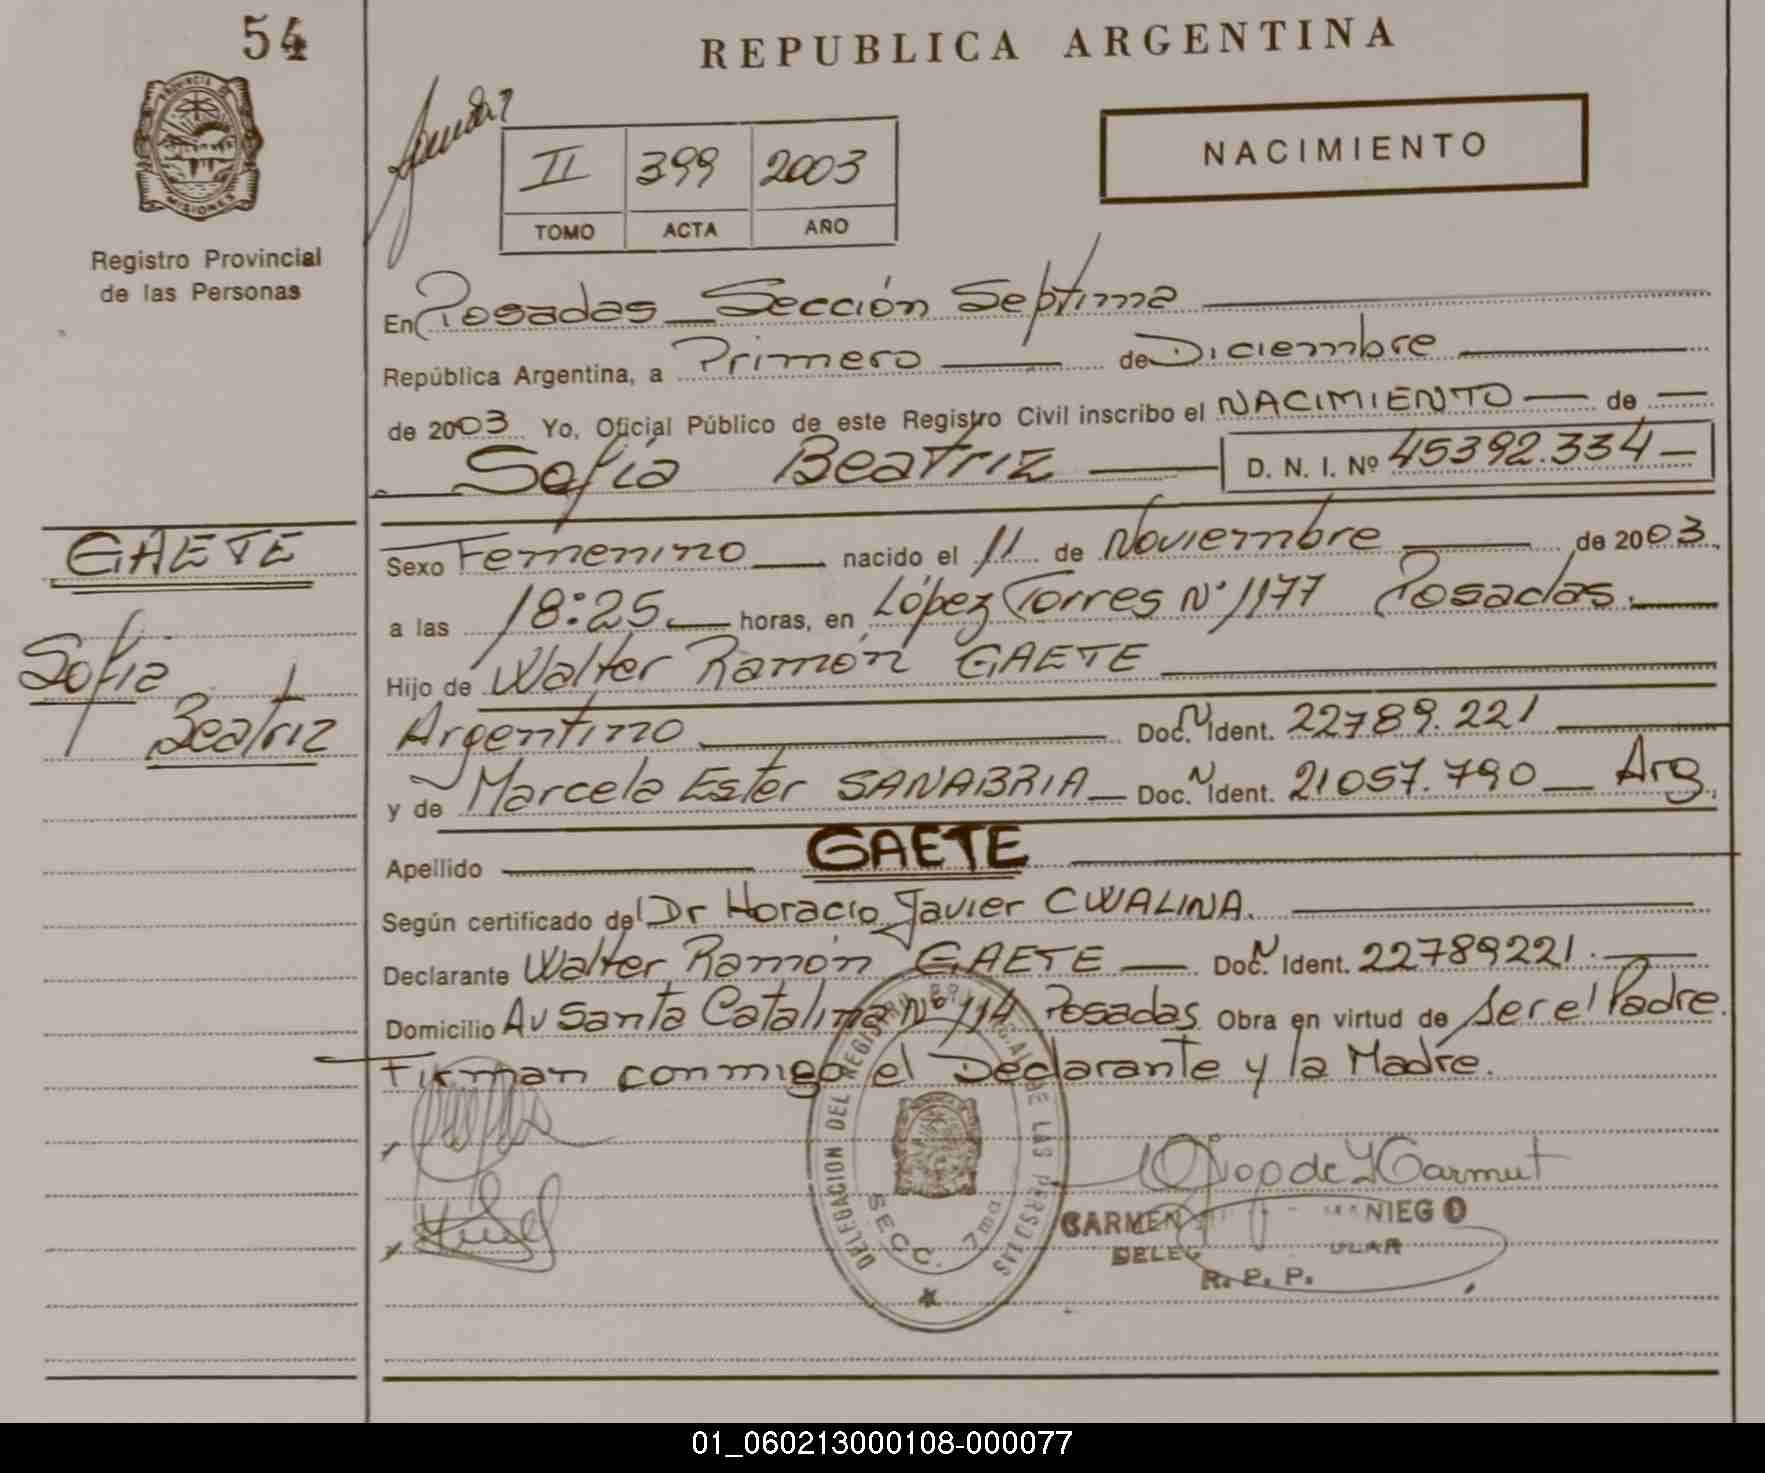 54
REPUBLICA ARGENTINA
PROVINCIA DE
MISIONES
Registro Provincial
de las Personas
II 399 2003
TOMO ACTA AÑO
NACIMIENTO
En Posadas _ Sección Septima
República Argentina, a Primero de Diciembre
de 2003 Yo, Oficial Público de este Registro Civil inscribo el NACIMIENTO — de —
Sofía Beatriz D. N. I. Nº 45392.334 —
GAETE
Sofía
Beatriz
Sexo Femenino nacido el 11 de Noviembre de 2003.
a las 18:25 horas, en López Torres Nº 1177 Posadas.
Hijo de Walter Ramón GAETE
Argentino Doc. N Ident. 22789.221
y de Marcela Ester SANABRIA — Doc. N Ident. 21057.790 — Arg.
Apellido GAETE
Según certificado del Dr Horacio Javier CWALINA.
Declarante Walter Ramón GAETE — Doc. N Ident. 22789221.
Domicilio Av Santa Catalina Nº 114 Posadas Obra en virtud de ser el Padre.
Firman conmigo el Declarante y la Madre.
DELEGACION DEL REGISTRO PROVINCIAL DE LAS PERSONAS
SECC. 7ma
CARMEN NIEGO
DELEG ULAR
R. P. P.
01_060213000108-000077